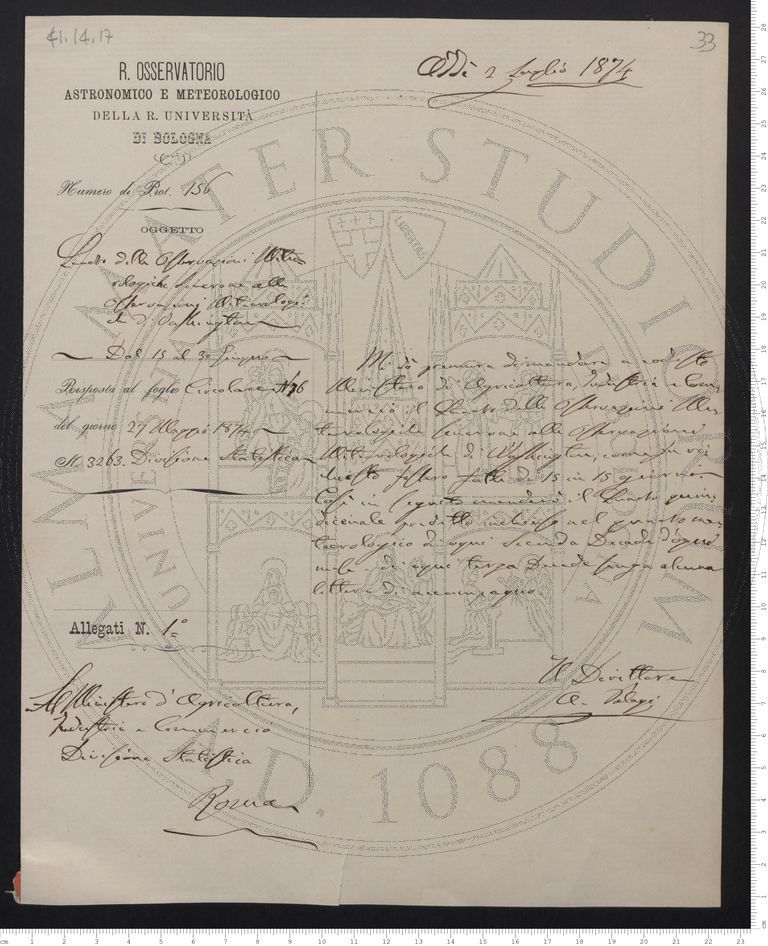 41.14.17
33
R. OSSERVATORIO
ASTRONOMICO E METEOROLOGICO
DELLA R. UNIVERSITÀ
DI BOLOGNA
Addì 2 Luglio 1874
Numero di Prot. 156
OGGETTO
Quadro delle Osservazioni Meteo-
rologiche sincrone alle
Osservazioni Meteorologi-
che di Washington
Dal 15 al 30 Giugno
Risposta al foglio Circolare N 76
del giorno 27 Maggio 1874
N. 3263. Divisione Statistica
Mi dò premura di mandare a codesto
Ministero di Agricoltura, Industria e Com-
mercio il Quadro delle Osservazioni Me-
teorologiche sincrone alle Osservazioni
Meteorologiche di Washington,
fatte di 15 in 15 giorni.
Così in seguito manderò il Quadro quin-
dicinale nel
teorologico di ogni seconda Decade
di ogni terza Decade senza alcuna
lettera di accompagno.
Allegati N. 1º
Il Direttore
A. Palagi
Al Ministero d'Agricoltura,
Industria e Commercio
Divisione Statistica
Roma
ALMA MATER STUDIORUM
A.D. 1088